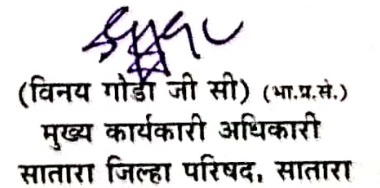 (विनय गोडा जी सी) (भा.प्र.से.)
मुख्य कार्यकारी अधिकारी
सातारा जिल्हा परिषद, सातारा